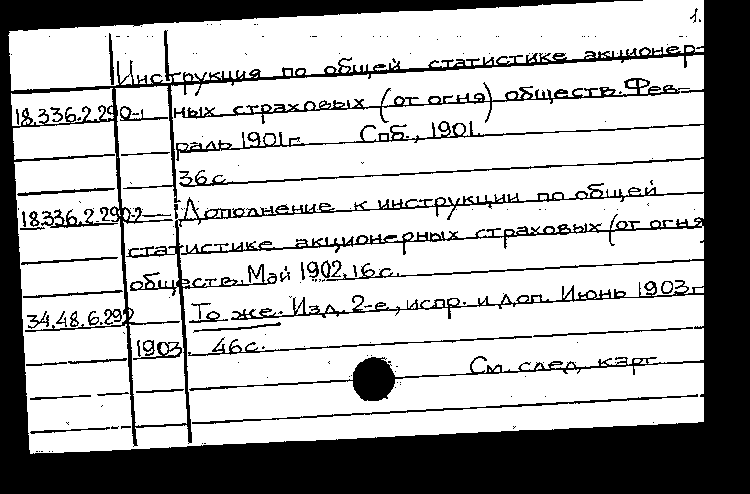 1.
Инструкция по общей статистике акционер-
18.336.2.290-1 ных страховых (от огня) обществ. Фев-
раль 1901г. Спб., 1901.
36с.
18.336.2.290-2 Дополнение к инструкции по общей
статистике акционерных страховых (от огня)
обществ. Май 1902. 16с.
34.48.6.292 То же. Изд. 2-е, испр. и доп. Июнь 1903г.
1903. 46с.
См. след. карт.